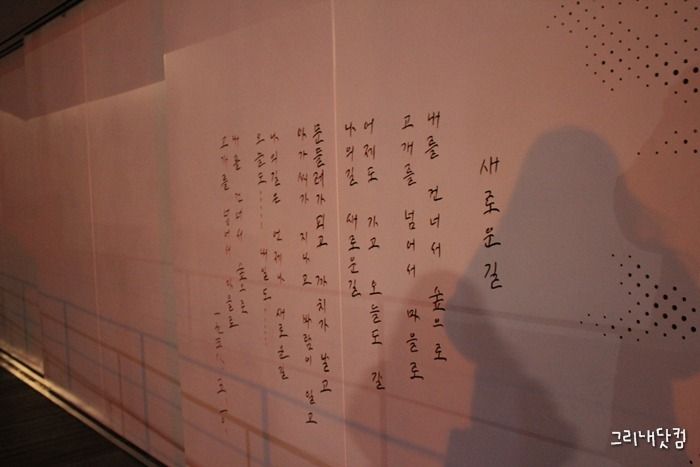 새로운길
내를 건너서 숲으로
고개를 넘어서 마을로
어제도 가고 오늘도 갈
나의길 새로운길
문들레가피고 까치가 날고
아가씨가 지나고 바람이 일고
나의길은 언제나 새로운길
오늘도...... 내일도......
내를 건너서 숲으로
고개를 넘어서 마을로
그리내닷컴